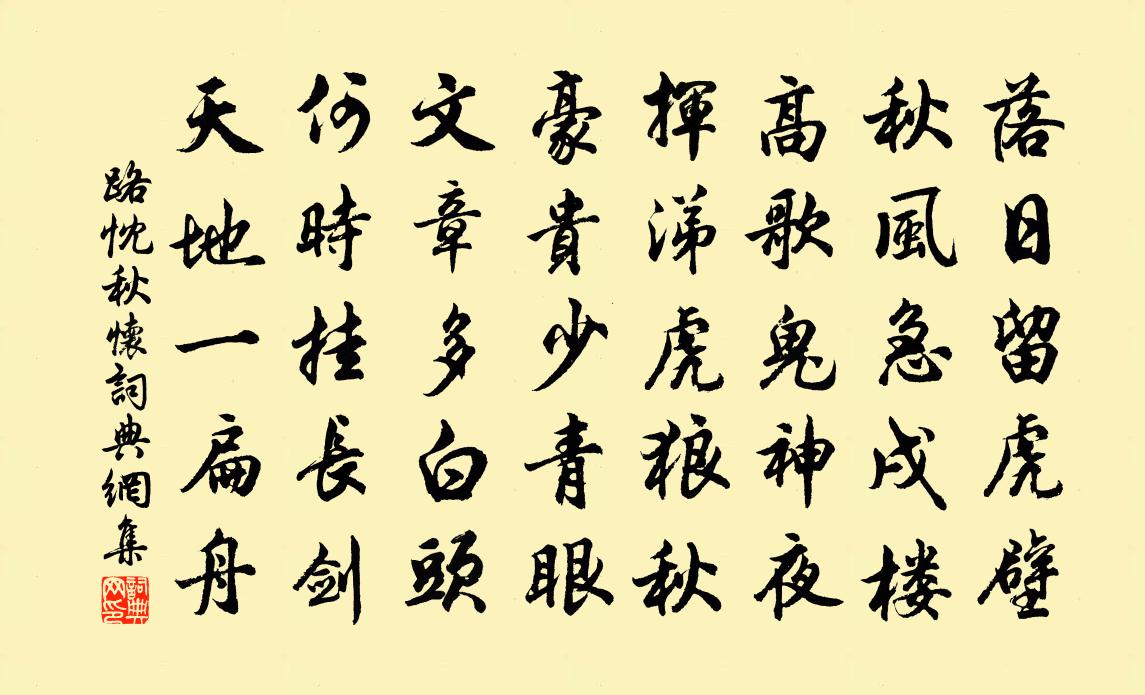 落日留虎壁
秋風急戍楼
髙歌鬼神夜
揮涕虎狼秋
豪貴少青眼
文章多白頭
何時挂長剑
天地一扁舟
路忱秋懷詞典網集
詞典网印